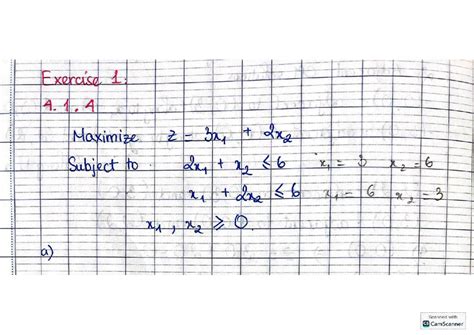 Exercise 1:
4.1.4
Maximize z = 3x₁ + 2x₂
Subject to 2x₁ + x₂ ≤ 6 x₁ = 3 x₂ = 6
x₁ + 2x₂ ≤ 6 x₁ = 6 x₂ = 3
x₁, x₂ ≥ 0.
a)
Scanned with
CS CamScanner